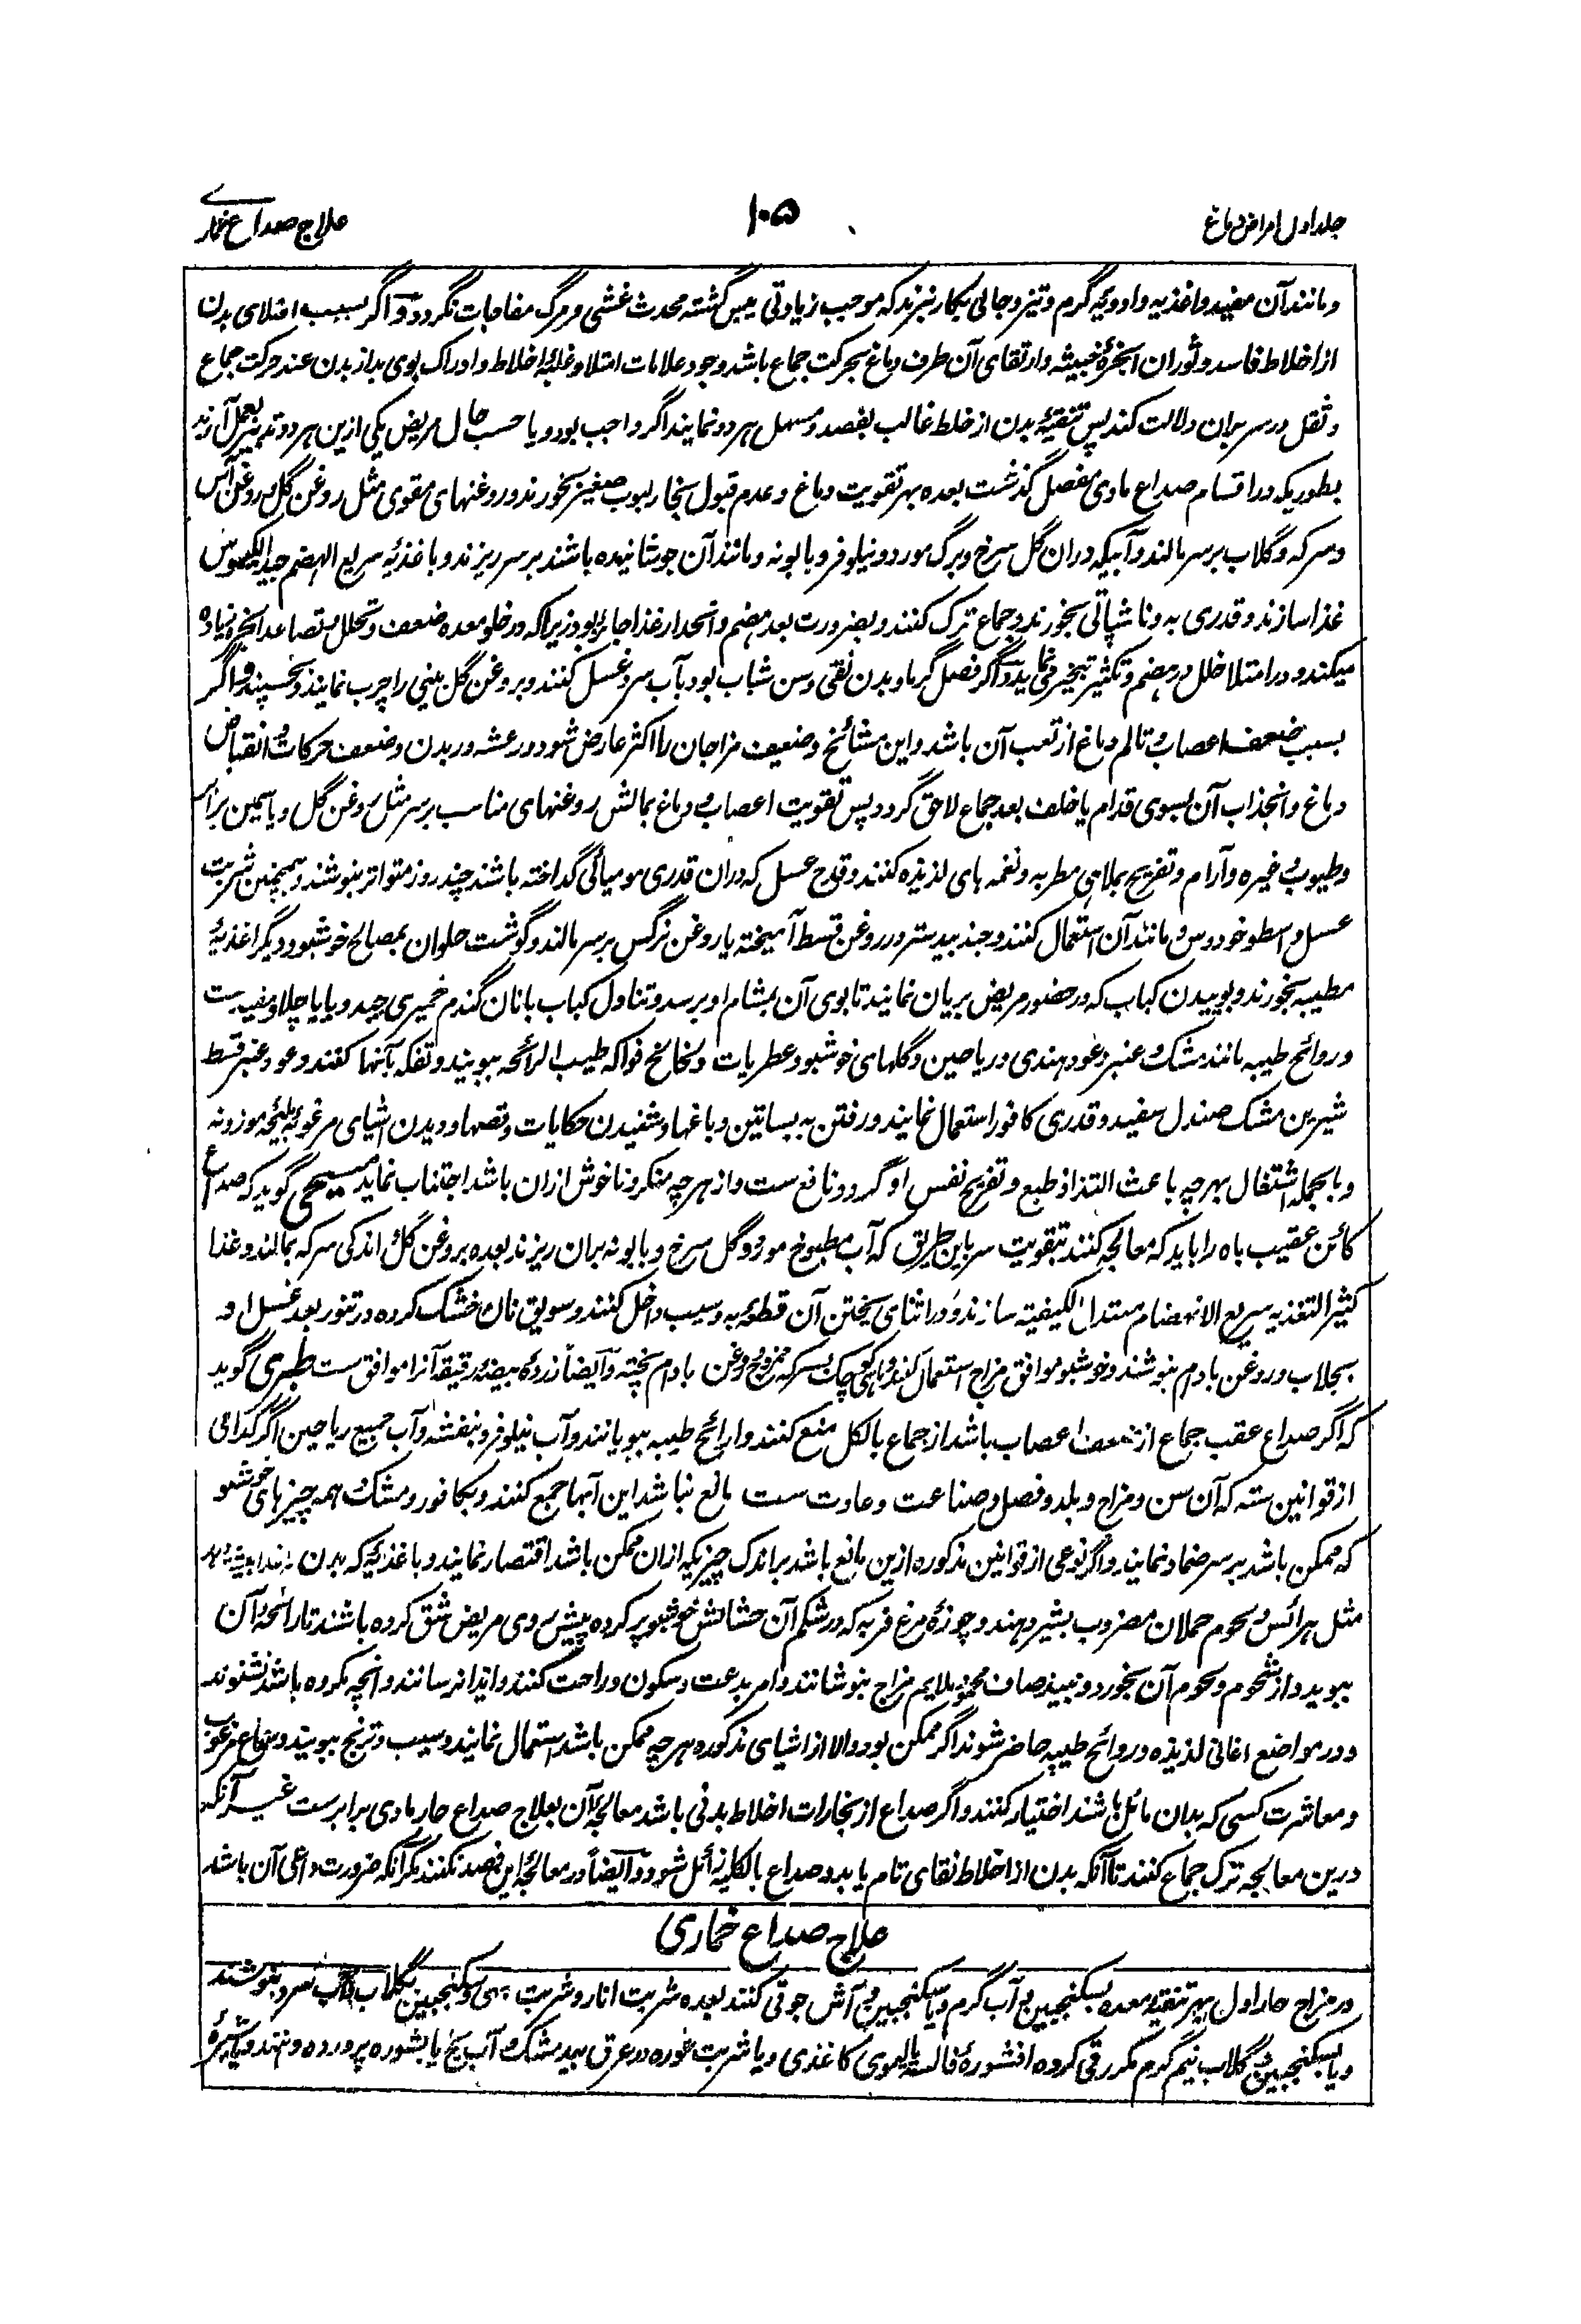 جلد اول امراض دماغ
۱۰۵
علاج صداع خماری
و مانند آن مفید و اغذیه و ادویهٔ گرم و تیز و جالی بکار نبرند که موجب زیادتی یبس گشته محدث غشی و مرگ مفاجات نگردد و اگر بسبب امتلای بدن
از اخلاط فاسد و ثوران ابخرهٔ خبیثه و ارتقای آن طرف دماغ بحرکت جماع باشد وجود علامات امتلا و غلبهٔ اخلاط و ادراک بوی بد از بدن عند حرکت جماع
و ثقل در سر بران دلالت کند پس تنقیهٔ بدن از خلط غالب بفصد و مسهل هر دو نمایند اگر واجب بود و یا حسب حال مریض یکی ازین هر دو تدبیر بعمل آرند
بطوریکه در اقسام صداع مادی مفصل گذشت بعده بهر تقویت دماغ و عدم قبول بخار لبوب صغیر بخورند و روغنهای مقوی مثل روغن گل و روغن آس
و سرکه و گلاب بر سر مالند و آبیکه دران گل سرخ و برگ مورد و نیلوفر و بابونه و مانند آن جوشانیده باشند بر سر ریزند و باغذیهٔ سریع الهضم جید الکیموس
غذا سازند و قدری به و ناشپاتی بخورند و جماع ترک کنند و بضرورت بعد هضم و انحدار غذا جائز بود زیراکه در خلو معده ضعف و تحلل و تصاعد ابخره زیاده
میکند و در امتلا خلل در هضم و تکثیر تبخیر می نماید و اگر فصل گرما و بدن نقی و سن شباب بود بآب سرد غسل کنند و بروغن گل بینی را چرب نمایند و بخسپند و اگر
بسبب ضعف اعصاب و تالم دماغ از تعب آن باشد و این مشائخ و ضعیف مزاجان را اکثر عارض شود و رعشه در بدن و ضعف حرکات و انقباض
دماغ و انجذاب آن بسوی قدام یا خلف بعد جماع لاحق گردد پس تقویت اعصاب و دماغ بمالش روغنهای مناسب بر سر مثل روغن گل و یاسمین
و طیوب و غیره و آرام و تفریح بملاهی مطربه و نغمه های لذیذه کنند و قدح عسل که دران قدری مومیائی گداخته باشند چند روز متواتر بنوشند و همچنین شربت
عسل و اسطوخودوس و مانند آن استعمال کنند و جندبیدستر در روغن قسط آمیخته یا روغن نرگس بر سر مالند و گوشت حلوان بمصالح خوشبو و دیگر اغذیهٔ
مطیبه بخورند و بوییدن کباب که در حضور مریض بریان نمایند تا بوی آن بمشام او برسد و تناول کباب با نان گندم خمیری جید و یا با چلاو مفید ست
و روائح طیبه مانند مشک و عنبر و عود هندی و ریاحین و گلهای خوشبو و عطریات و لخالخ فواکه طیب الرائحه ببویند و تفکه بآنها کنند و عود عنبر قسط
شیرین مشک صندل سفید و قدری کافور استعمال نمایند و رفتن به بساتین و باغها و شنیدن حکایات و قصها و دیدن اشیای مرغوبه موزونه
و بالجمله اشتغال بهرچه باعث التذاذ طبع و تفریح نفس او گردد نافع ست و از هرچه متکر و ناخوش ازان باشد اجتناب نماید مسیحی گوید که صداع
کائن عقیب باه را باید که معالجه کنند بتقویت سر باین طریق که آب مطبوخ مورد و گل سرخ و بابونه بران ریزند بعده بروغن گل و اندکی سرکه بمالند و غذا
کثیر التغذیه سریع الانهضام معتدل الکیفیه سازند و در اثنای پختن آن قطعهٔ به و سیب داخل کنند و سویق نان خشک کرده در تنور بعد غسل او
بجلاب و روغن بادام بنوشند و خوشبو موافق مزاج استعمال کنند و ماهی کوچک بسرکه ممزوج و روغن بادام پخته و ایضاً زردهٔ بیضهٔ رقیقه آنرا موافق ست طبری گوید
که اگر صداع عقب جماع از ضعف اعصاب باشد از جماع بالکل منع کنند و ارائح طیبه ببویانند و آب نیلوفر و بنفشه و آب جمیع ریاحین اگر کدامی
از قوانین سته که آن سن و مزاج و بلد و فصل و صناعت و عادت ست مانع نباشد این آبها جمع کنند و بکافور و مشک و همه چیزهای خوشبو
که ممکن باشد بر سر ضماد نمایند و اگر نوعی از قوانین مذکوره ازین مانع باشد بر اندک چیزیکه ازان ممکن باشد اقتصار نمایند و باغذیه که بدن
مثل هرائس و لحوم حملان مضروب بشیر دهند و چوزهٔ مرغ فربه که در شکم آن حشائش خوشبو پر کرده پیش روی مریض شق کرده باشند تا رائحهٔ آن
ببوید و از شحوم و لحوم آن بخورد و نبیذ صاف ممزوج ملایم مزاج بنوشانند و امر بدعت و سکون و راحت کنند و ایذا نرسانند و انچه مکروه باشد نشنوند
و در مواضع اغانی لذیذه و روائح طیبه حاضر شوند اگر ممکن بود و الا از اشیای مذکوره هرچه ممکن باشد استعمال نمایند و سیب و ترنج ببویند و سماع مرغوب
و معاشرت کسی که بدان مائل باشند اختیار کنند و اگر صداع از بخارات اخلاط بدنی باشد معالجهٔ آن بعلاج صداع حار مادی برابر ست غیر آنکه
درین معالجه ترک جماع کنند تا آنکه بدن از اخلاط نقای تام یابد و صداع بالکلیه زائل شود و ایضاً در معالجهٔ این فصد نکنند مگر آنکه ضرورت داعی آن باشد
علاج صداع خماری
در مزاج حار اول بهر تنقیهٔ معده بسکنجبین و آب گرم و یا سکنجبین و آش جو قی کنند بعده شربت انار و شربت بهی و سکنجبین بگلاب و آب سرد بنوشند
و یا بسکنجبین و گلاب نیم گرم مکرر قی کرده افشورهٔ فالسه یا لیموی کاغذی و یا شربت غوره در عرق بیدمشک و آب یخ یا بشوره پرورده دهند و یا شیرهٔ